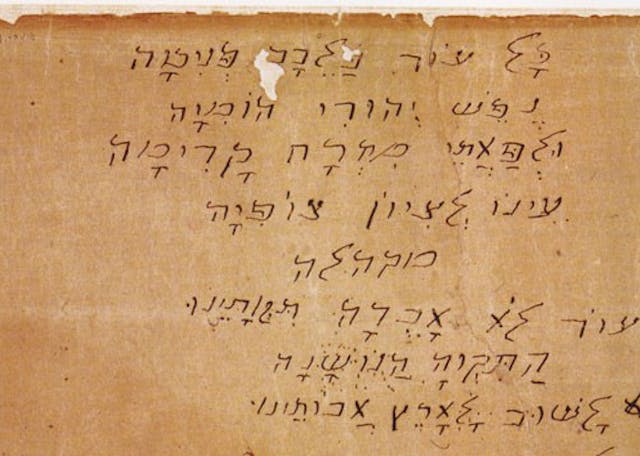 כָּל עוֹד בַּלֵּבָב פְּנִימָה
נֶפֶשׁ יְהוּדִי הוֹמִיָּה
וּלְפַאֲתֵי מִזְרָח קָדִימָה
עֵינוֹ לְצִיוֹן צוֹפִיָּה
מקהלה
עוֹד לֹא אָבְדָה תִּקְוָתֵינוּ
הַתִּקְוָה הַנּוֹשָׁנָה
לָשׁוּב לָאָרֶץ אֲבוֹתֵינוּ